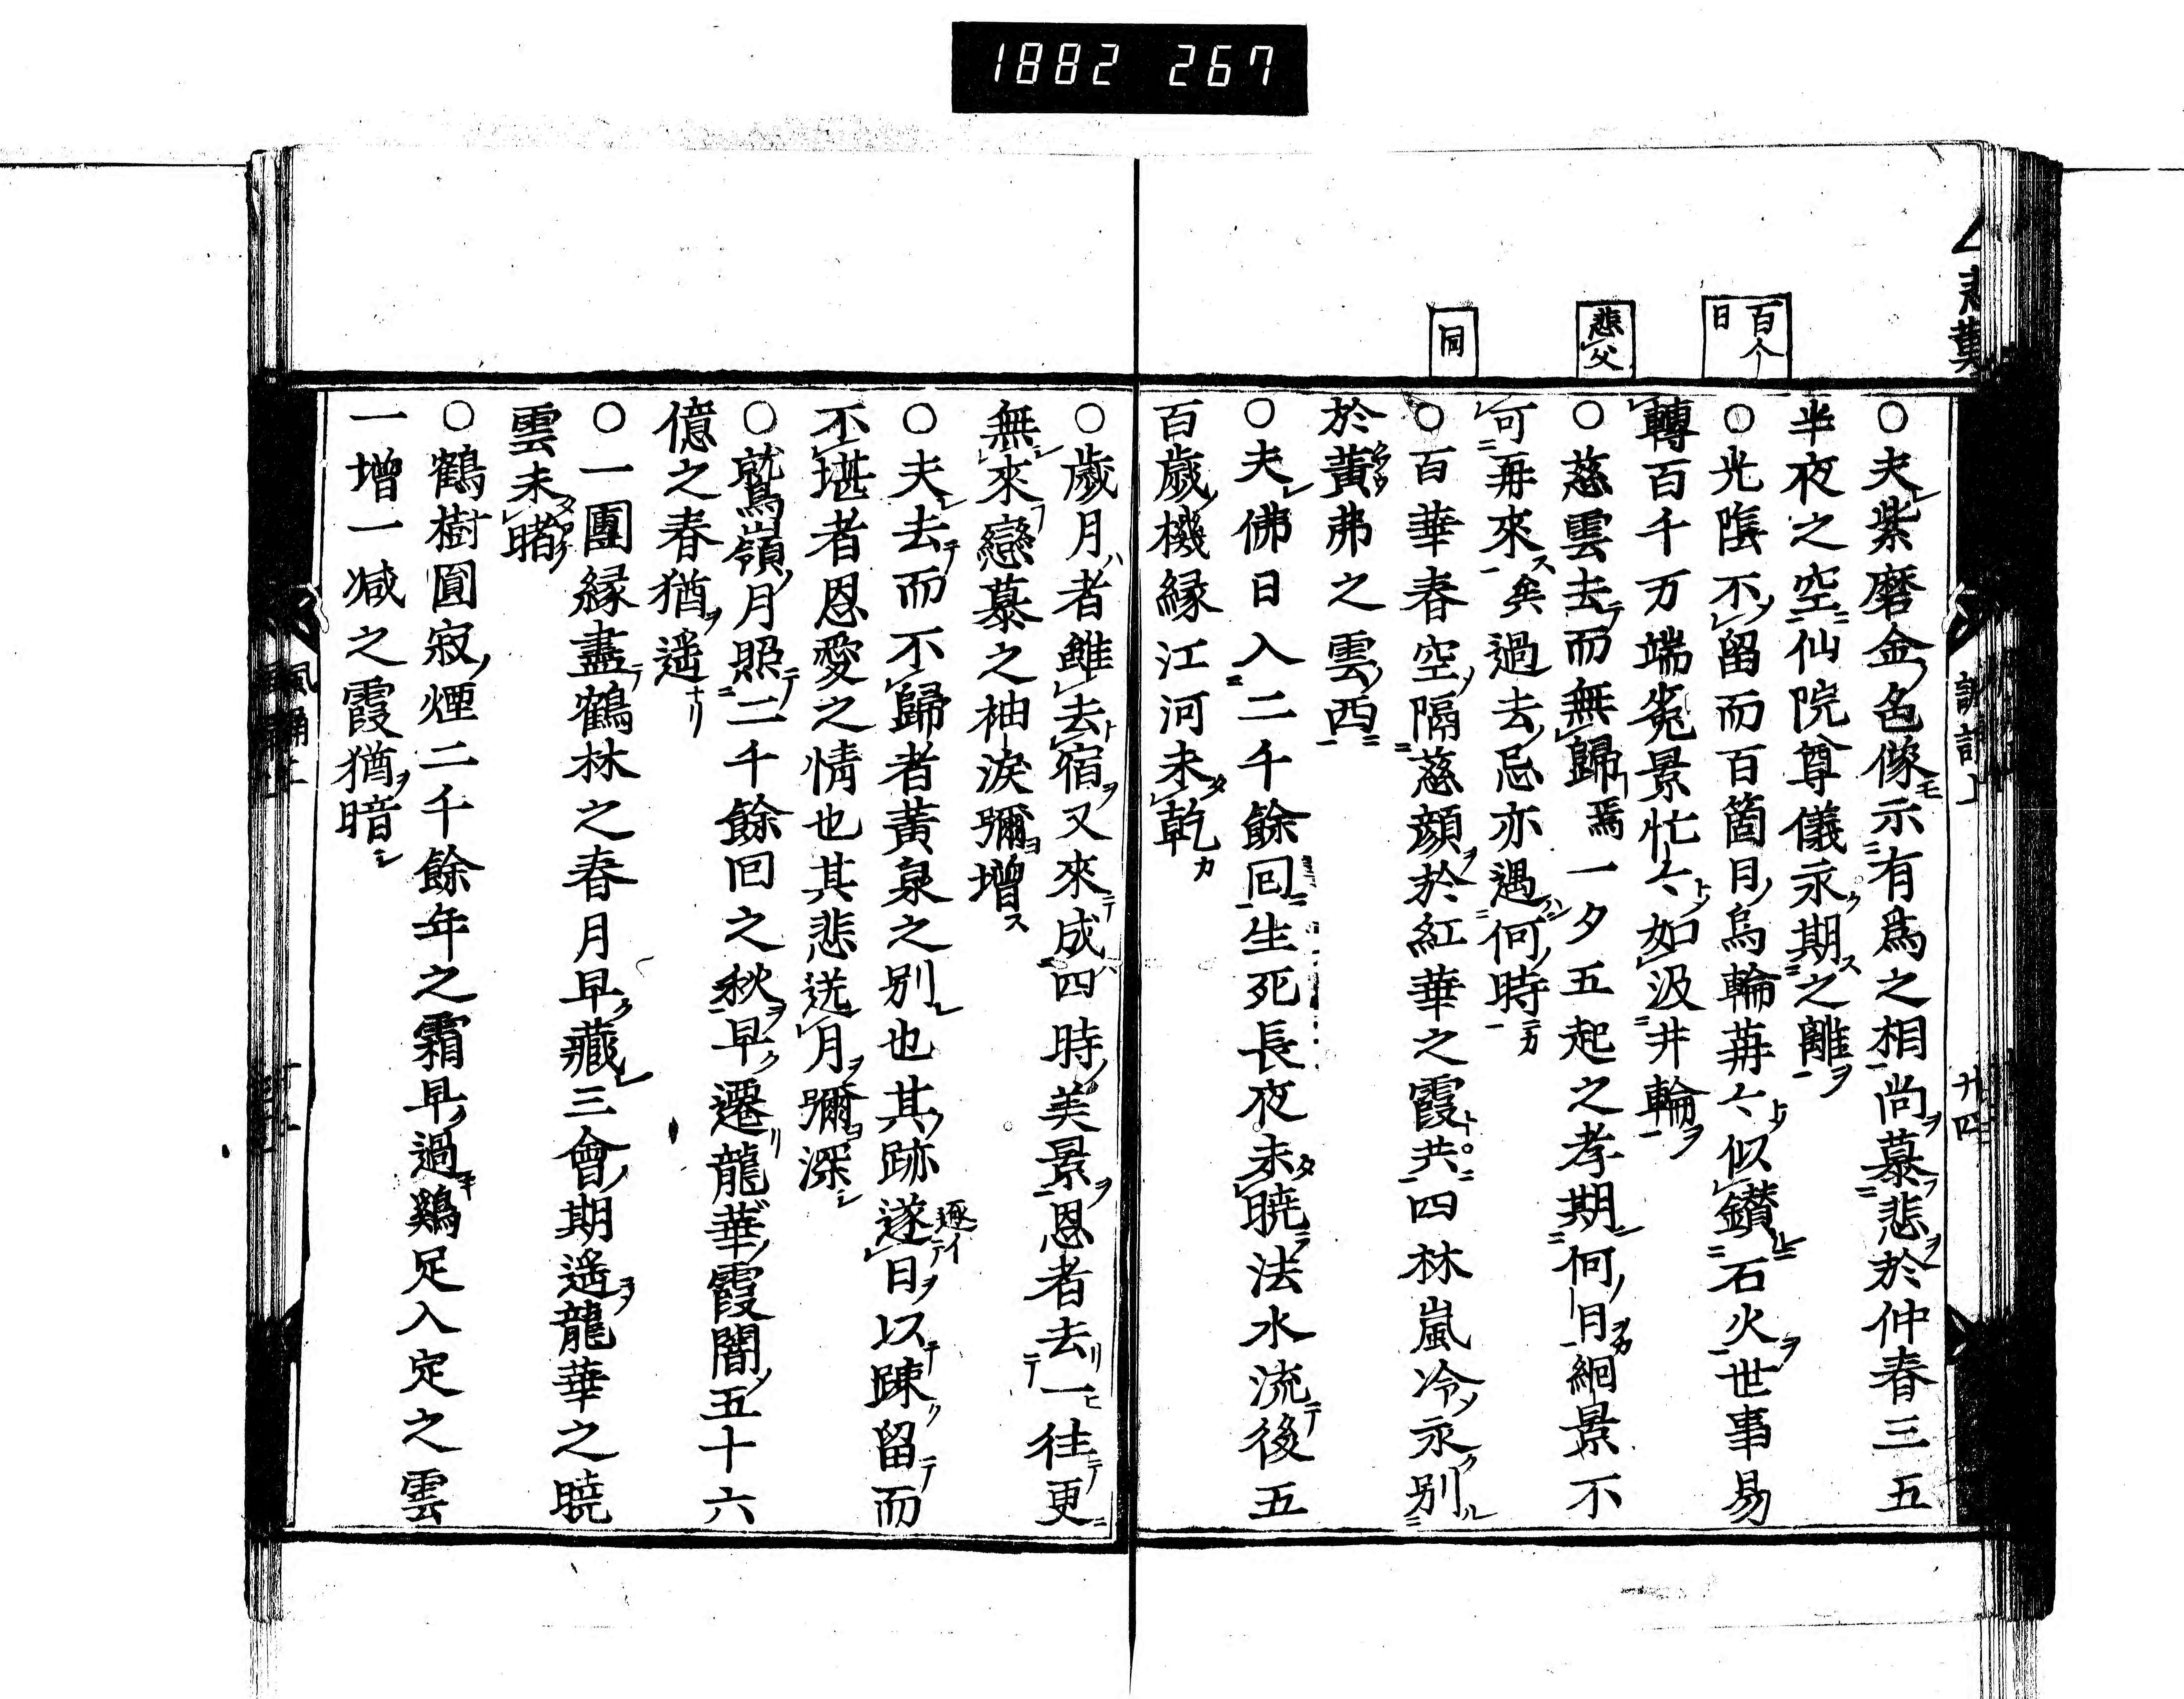 1882 267
百个日
悲父
同
○夫紫磨金色像示有爲之相尚慕悲於仲春三五
半夜之空仙院尊儀永期之離
○光陰不留而百箇日烏輪苒々似鑚石火世事易
轉百千万端兎景忙々如汲井輪
○慈雲去而無歸焉一夕五起之孝期何日絗景不
可再來矣過去忌亦遇何時
○百華春空隔慈顔於紅華之霞共四林嵐冷永別
於黄弗之雲西
○夫佛日入二千餘回生死長夜未曉法水流後五
百歳機縁江河未乾
○歳月者雖去宿又來成四時美景恩者去一往更
無來戀慕之袖涙彌增
○夫去而不歸者黄泉之別也其跡遂日以踈留而
不堪者恩愛之情也其悲送月彌深
○鷲嶺月照二千餘回之秋早遷龍華霞闇五十六
億之春猶遥
○一團縁盡鶴林之春月早藏三會期遥龍華之曉
雲未睹
○鶴樹圓寂煙二千餘年之霜早過鷄足入定之雲
一增一减之霞猶暗